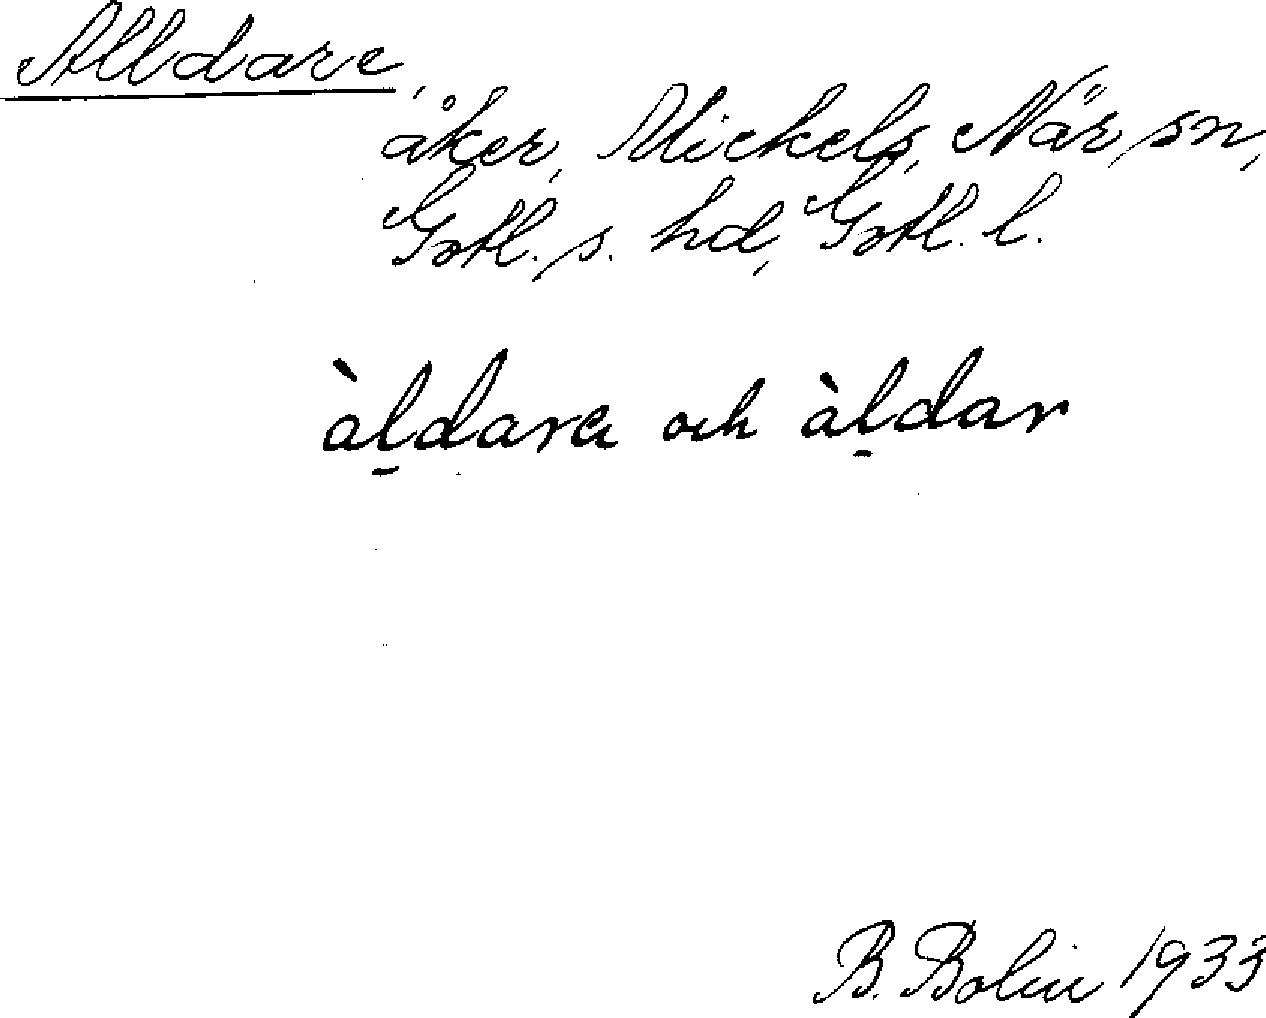 Alldare,
åker, Mickels, När sn,
Gotl. s. hd, Gotl. l.
àl̠dara och àl̠dar
B. Bolin 1933